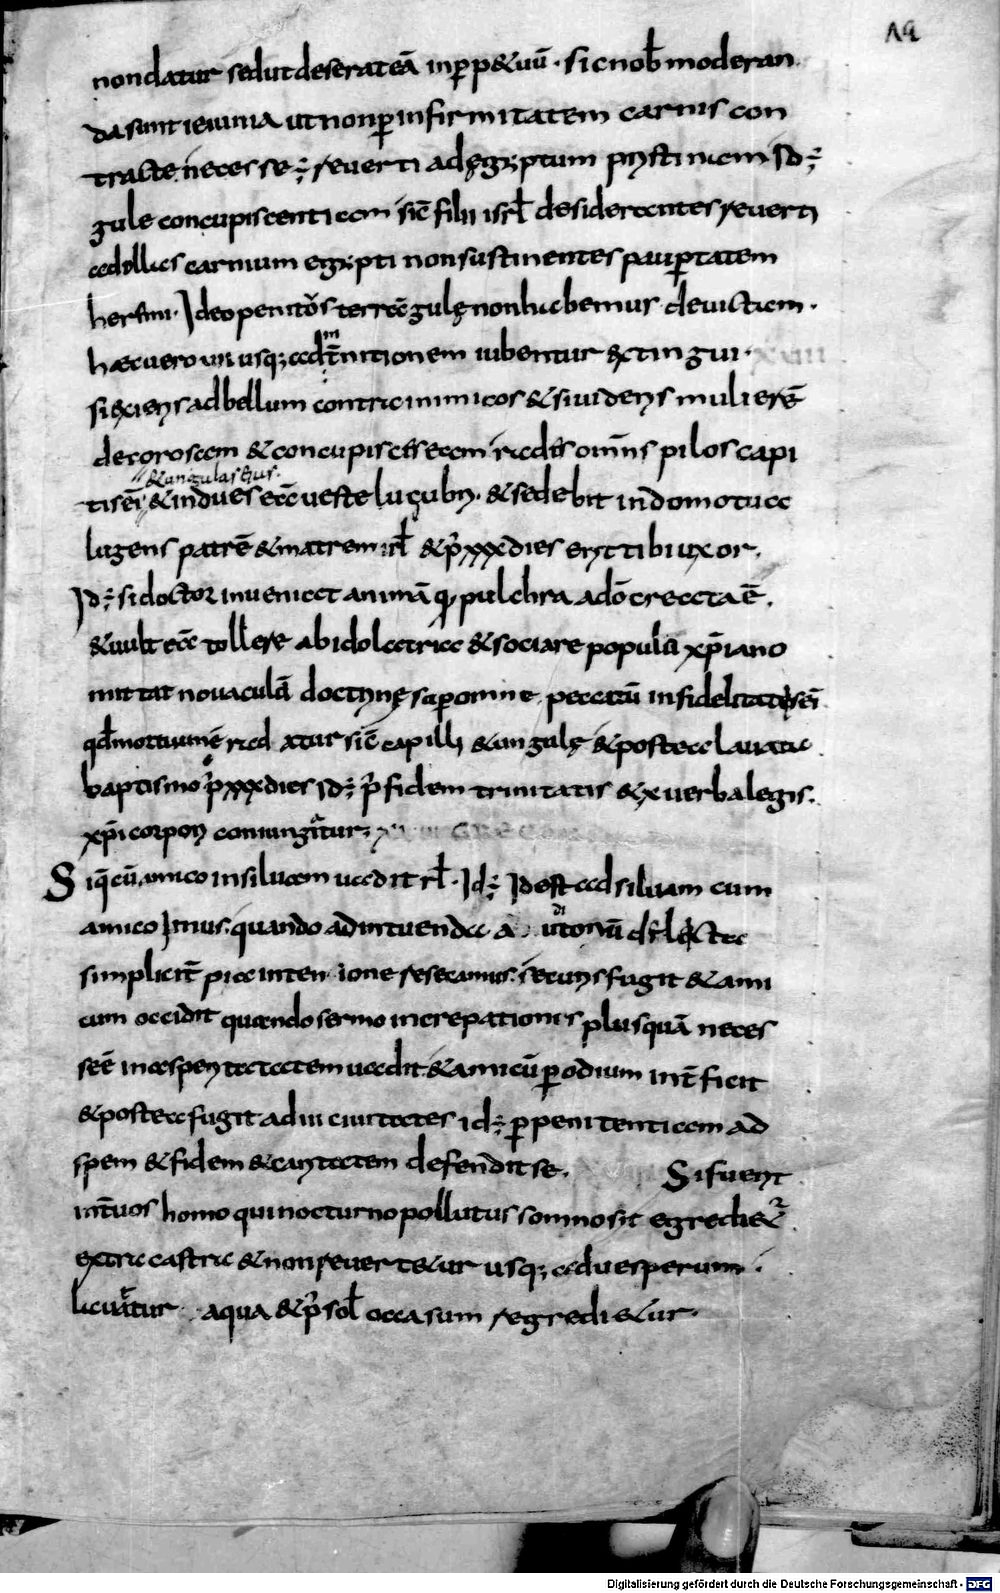 19
non datur sed ut deserat eā in ꝑp&uū · sic nob̄ moderan
da sunt ieiunia ut non ꝑ infirmitatem carnis con
tracte necesse ÷ reverti ad ęgyptum pristinam Id ÷
gule concupiscentiam sic̄ filii isrl̄ desiderantes reverti
ad ollas carnium egypti non sustinentes pauꝑtatem
heremi · Ideo peni tˀs terrā gulę non habemus deuictam ·
hæc uero usq; ad int̄nitionem iubentur extingui ·
si exiens ad bellum contra inimicos & si uideris mulierē
decoram & concupis eam rades om̄s pilos capi
& ungulas eius
tis ei & indues eā ueste lugubri · & sedebit in domo tua
lugens patrē & matrem rl̄ & p̄ xxx dies erit tibi uxor ·
Id ÷ si doctor inueniat animā q pulchra a dō creata ē ·
& uult eā tollere ab idolatria & sociare populo xp̄iano
mittat nouaculā doctrinę sup omne peccatū infidelitatis ei
qd̄ mortuum ē rad atur sic̄ capilli & ungulę & postea lauata
baptismo p̄ xxx dies id ÷ p̄ fidem trinitatis & x uerba legis ·
xp̄i corpori coniungatur
Si q̄ cū amico in siluam uadit rl̄ · Id ÷ Id est ad siluam cum
amico Imus · quando ad intuenda di
simplicit̄ pia intentione resecamus · securis fugit & ami
cum occidit quando sermo increpationis plus quā neces
seē in asperitatem uadit & amicū ꝑ odium int̄ficit
& postea fugit ad iii ciuitates id ÷ ꝑ penitentiam ad
spem & fidem & caritatem defendit se · Si fuerit
int̄ uos homo qui nocturno pollutus somno sit egredi&
extra castra & non revert&ur usq; ad uesperum ·
lauatur aqua & p̄ sol occasum regredi&ur ·
Digitalisierung gefördert durch die Deutsche Forschungsgemeinschaft - DFG